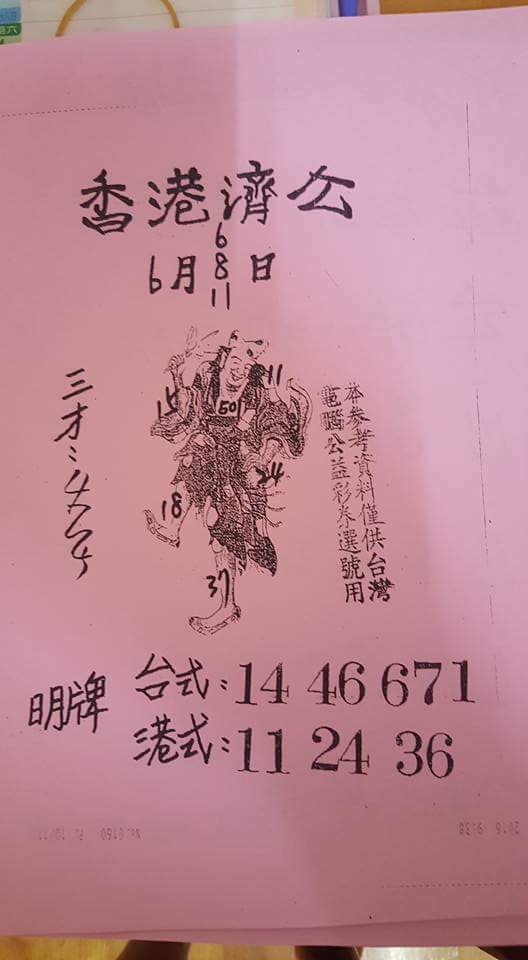 香港濟公
6月 6 8 11 日
本參考資料僅供台灣
電腦公益彩券選號用
三才:
15
11
50
24
18
37
明牌
台式:14 46 671
港式:11 24 36